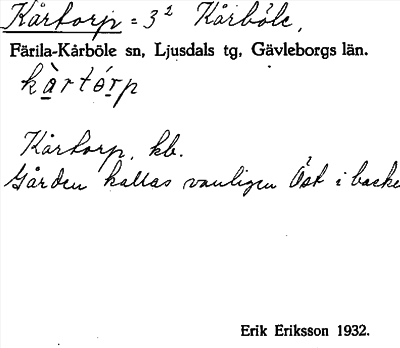 Kårtorp = 3² Kårböle,
Färila-Kårböle sn, Ljusdals tg, Gävleborgs län.
kàrtórp
Kårtorp, kb.
Gården kallas vanligen Öst i backe
Erik Eriksson 1932.